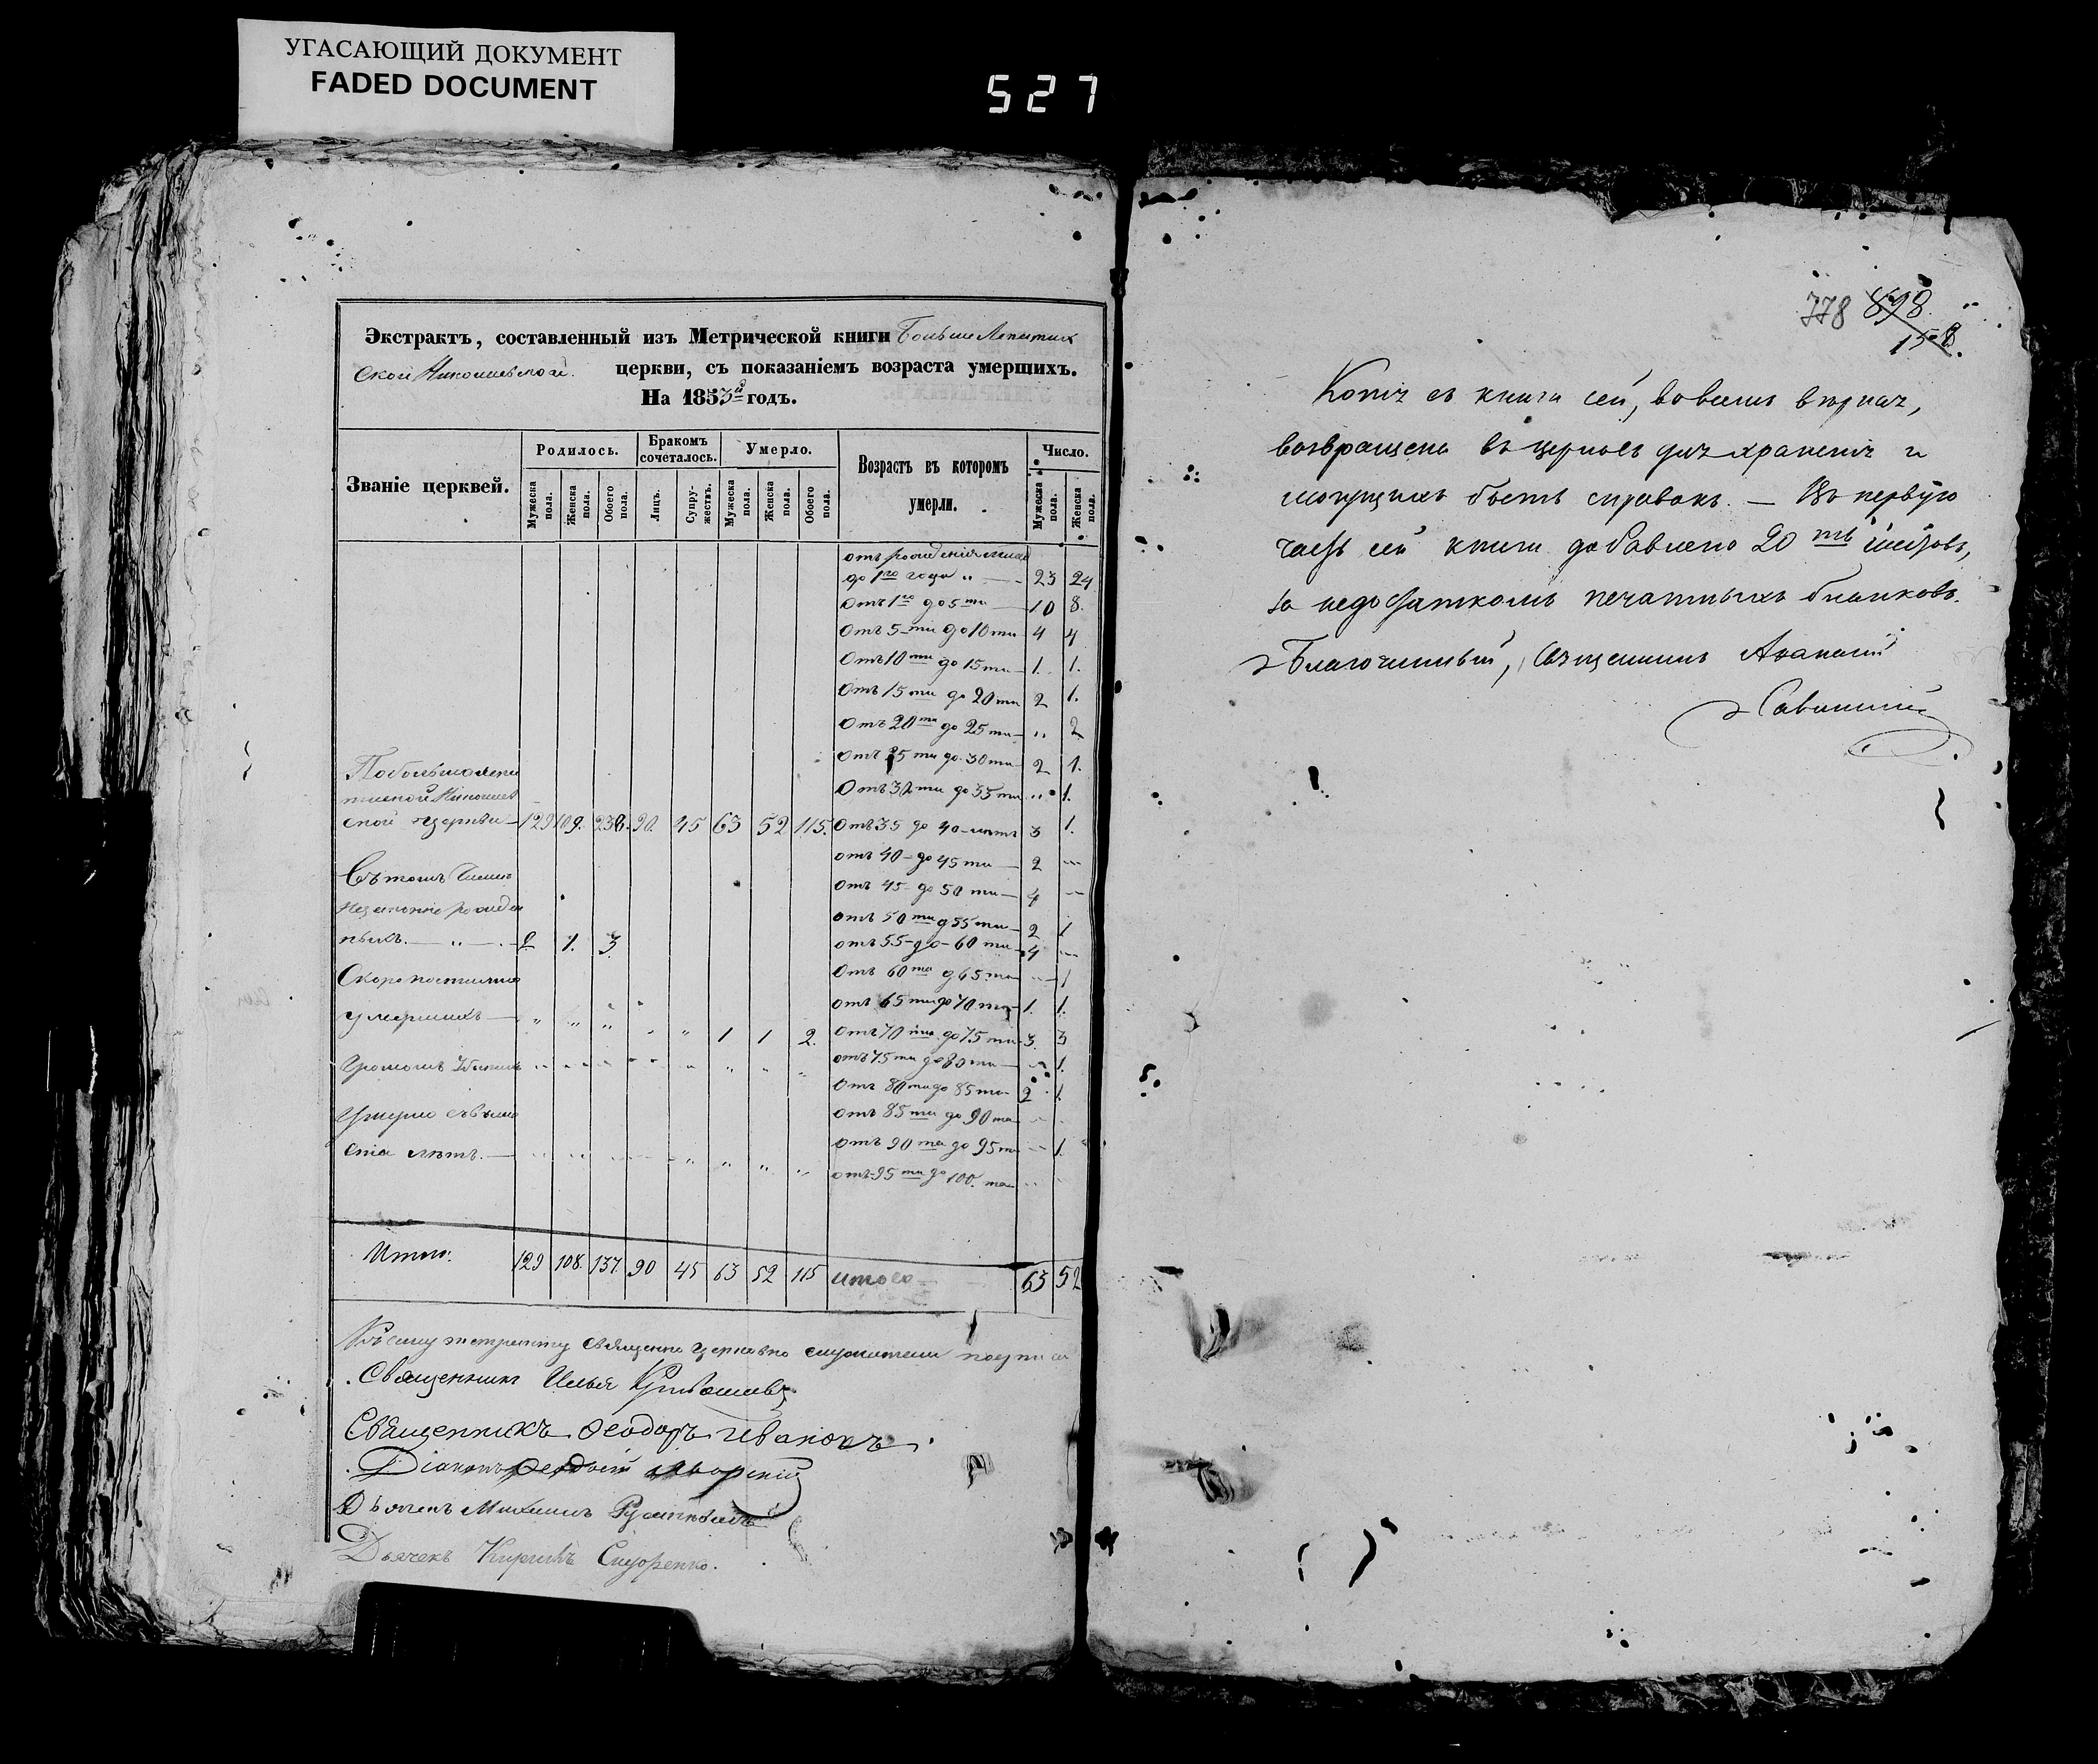 УГАСАЮЩИЙ ДОКУМЕНТ
FADED DOCUMENT
527
Экстрактъ, составленный изъ Метрической книги Больше Лепетих
ской Николаевской церкви, съ показаніемъ возраста умерщихъ.
На 1853й годъ.
Званіе церквей.
Родилось.
Бракомъ сочеталось.
Умерло.
Возрастъ въ которомъ умерли.
Число.
Мужеска пола.
Женска пола.
Обоего пола.
Лицъ.
Супружествъ.
Мужеска пола.
Женска пола.
Обоего пола.
Мужеска пола.
Женска пола.
отъ рожденія
до 1го года „ — 23 24
Отъ 1го до 5ти — 10 8.
Отъ 5-ти до 10ти 4 4
Отъ 10ти до 15ти 1. 1.
Отъ 15ти до 20ти 2 1.
Отъ 20ти до 25ти „ 2
Отъ 25ти до 30ти 2 1.
Отъ 30ти до 35ти „ 1.
По большелепе
тихской Николаев
ской церкви 129 109. 238. 90. 45 63 52 115. Отъ 35 до 40-летъ 3 1.
отъ 40-до 45ти — 2 —
Въ томъ числе
отъ 45-до 50ти — 4 —
незаконно рожден
отъ 50ти д 55ти 2 1
ныхъ. — „ — 2. 1. 3 отъ 55-до-60ти 4 —
Скоропостижно
Отъ 60ти д 65ти — 1
умершихъ — „ „ „ „ „ 1 1 2.
отъ 65ти до 70ти 1. 1.
Отъ 70ти до 75ти 3. 3
Громомъ Убитыхъ
отъ 75ти до 80ти — 1.
Отъ 80ти до 85ти 2 1.
Умерло свыше
отъ 85ти до 90та
ста летъ. —
отъ 90та до 95ти — 1.
отъ 95ти до 100. та
Итого: 129 108. 137 90 45 63 52 115 итого 63 52
Къ сему экстракту священно церковно служители
Священникъ Илья
Священникъ Феодоръ Ивановъ.
Діаконъ Яворскій
Дьячекъ Михаилъ
Дьячекъ Кириллъ Сидоренко.
778 898
Копія съ книги сей, во всемъ верная,
возвращена въ церковь для храненія и
могущихъ быть справокъ. — Въ первую
часть сей книги добавлено 20ть листовъ,
за недостаткомъ печатныхъ бланковъ.
Благочинный, Священникъ
Савинский